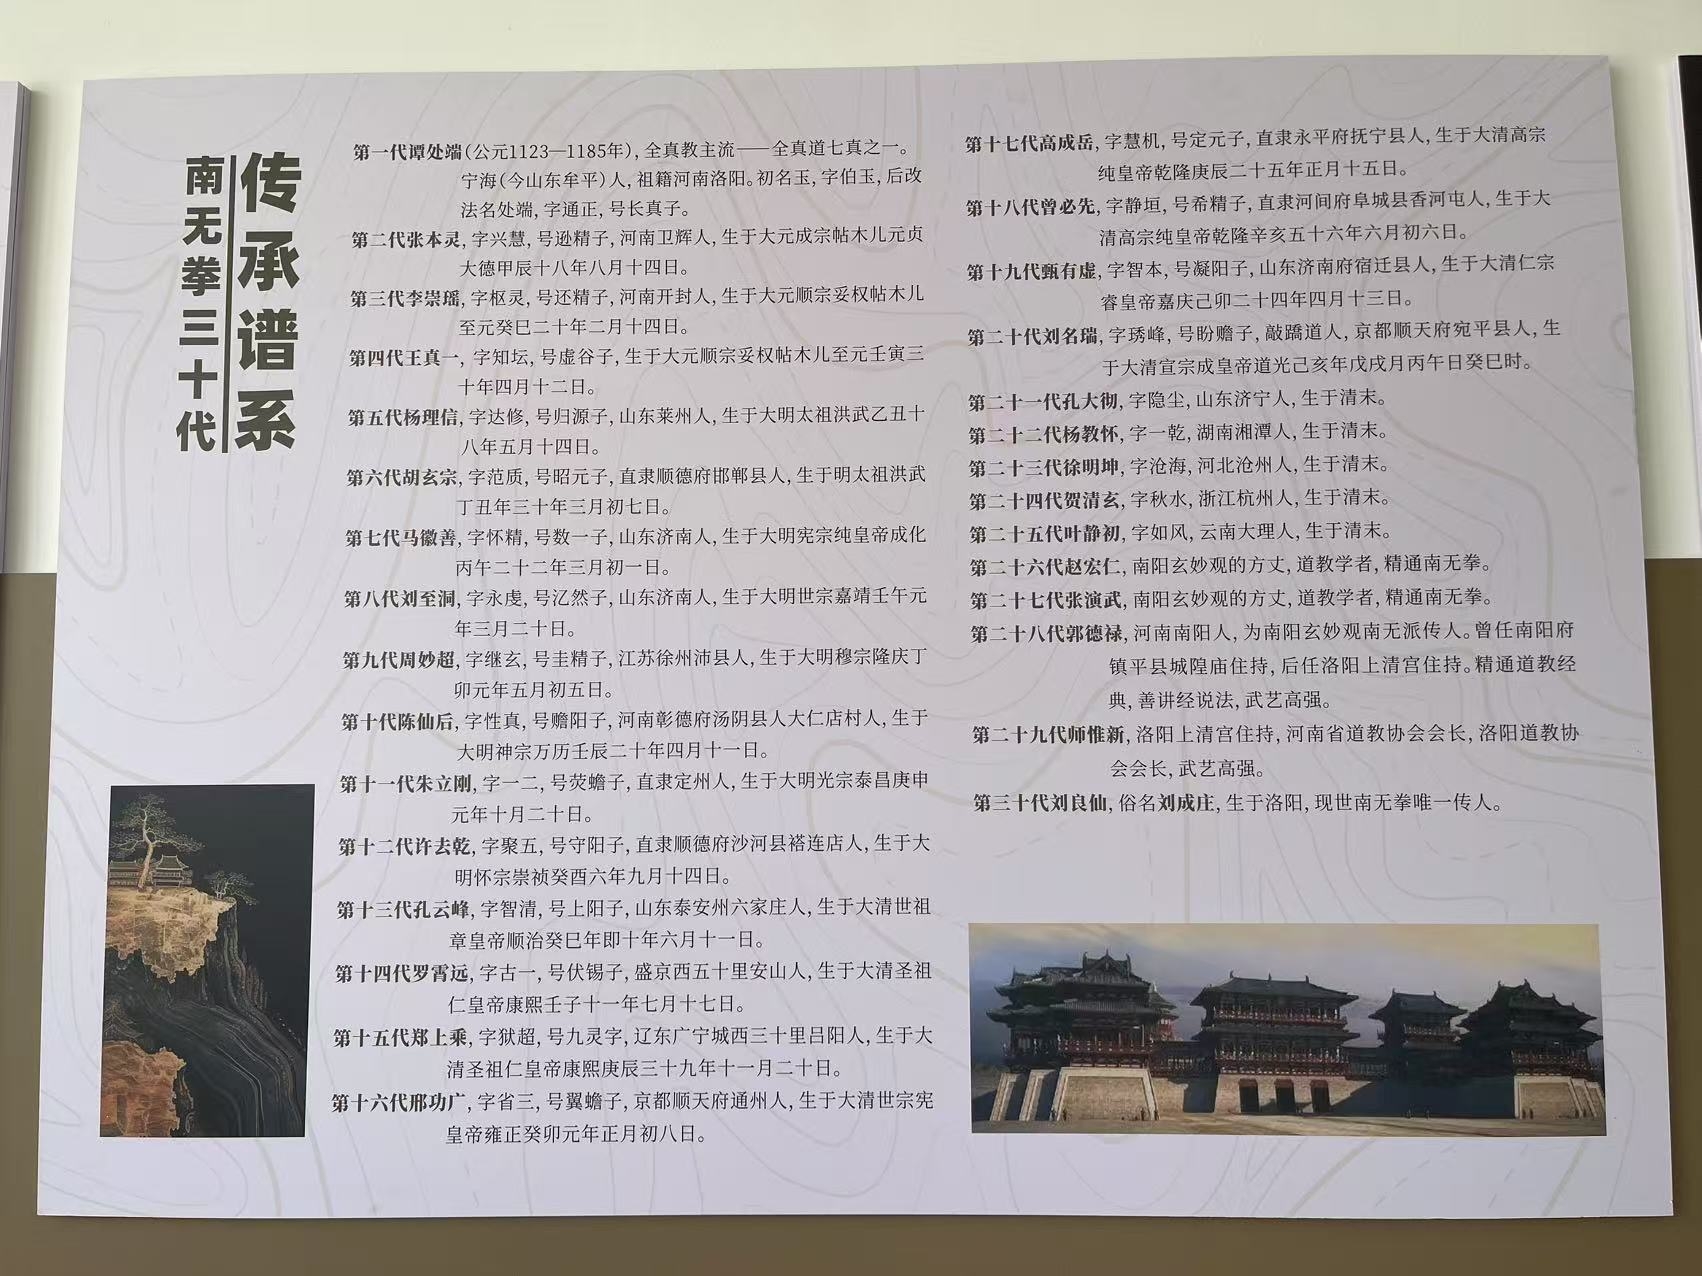 传承谱系
南无拳三十代
第一代谭处端(公元1123—1185年),全真教主流——全真道七真之一。
宁海(今山东牟平)人,祖籍河南洛阳。初名玉,字伯玉,后改
法名处端,字通正,号长真子。
第二代张本灵,字兴慧,号逊精子,河南卫辉人,生于大元成宗帖木儿元贞
大德甲辰十八年八月十四日。
第三代李崇瑶,字枢灵,号还精子,河南开封人,生于大元顺宗妥权帖木儿
至元癸巳二十年二月十四日。
第四代王真一,字知坛,号虚谷子,生于大元顺宗妥权帖木儿至元壬寅三
十年四月十二日。
第五代杨理信,字达修,号归源子,山东莱州人,生于大明太祖洪武乙丑十
八年五月十四日。
第六代胡玄宗,字范质,号昭元子,直隶顺德府邯郸县人,生于明太祖洪武
丁丑年三十年三月初七日。
第七代马徽善,字怀精,号数一子,山东济南人,生于大明宪宗纯皇帝成化
丙午二十二年三月初一日。
第八代刘至洞,字永虔,号汇然子,山东济南人,生于大明世宗嘉靖壬午元
年三月二十日。
第九代周妙超,字继玄,号圭精子,江苏徐州沛县人,生于大明穆宗隆庆丁
卯元年五月初五日。
第十代陈仙后,字性真,号赡阳子,河南彰德府汤阴县人大仁店村人,生于
大明神宗万历壬辰二十年四月十一日。
第十一代朱立刚,字一二,号荧蟾子,直隶定州人,生于大明光宗泰昌庚申
元年十月二十日。
第十二代许去乾,字聚五,号守阳子,直隶顺德府沙河县褡连店人,生于大
明怀宗崇祯癸酉六年九月十四日。
第十三代孔云峰,字智清,号上阳子,山东泰安州六家庄人,生于大清世祖
章皇帝顺治癸巳年即十年六月十一日。
第十四代罗霄远,字古一,号伏锡子,盛京西五十里安山人,生于大清圣祖
仁皇帝康熙壬子十一年七月十七日。
第十五代郑上乘,字狱超,号九灵字,辽东广宁城西三十里吕阳人,生于大
清圣祖仁皇帝康熙庚辰三十九年十一月二十日。
第十六代邢功广,字省三,号翼蟾子,京都顺天府通州人,生于大清世宗宪
皇帝雍正癸卯元年正月初八日。
第十七代高成岳,字慧机,号定元子,直隶永平府抚宁县人,生于大清高宗
纯皇帝乾隆庚辰二十五年正月十五日。
第十八代曾必先,字静垣,号希精子,直隶河间府阜城县香河屯人,生于大
清高宗纯皇帝乾隆辛亥五十六年六月初六日。
第十九代甄有虚,字智本,号凝阳子,山东济南府宿迁县人,生于大清仁宗
睿皇帝嘉庆己卯二十四年四月十三日。
第二十代刘名瑞,字琇峰,号盼赡子,敲蹻道人,京都顺天府宛平县人,生
于大清宣宗成皇帝道光己亥年戊戌月丙午日癸巳时。
第二十一代孔大彻,字隐尘,山东济宁人,生于清末。
第二十二代杨教怀,字一乾,湖南湘潭人,生于清末。
第二十三代徐明坤,字沧海,河北沧州人,生于清末。
第二十四代贺清玄,字秋水,浙江杭州人,生于清末。
第二十五代叶静初,字如风,云南大理人,生于清末。
第二十六代赵宏仁,南阳玄妙观的方丈,道教学者,精通南无拳。
第二十七代张演武,南阳玄妙观的方丈,道教学者,精通南无拳。
第二十八代郭德禄,河南南阳人,为南阳玄妙观南无派传人。曾任南阳府
镇平县城隍庙住持,后任洛阳上清宫住持。精通道教经
典,善讲经说法,武艺高强。
第二十九代师惟新,洛阳上清宫住持,河南省道教协会会长,洛阳道教协
会会长,武艺高强。
第三十代刘良仙,俗名刘成庄,生于洛阳,现世南无拳唯一传人。